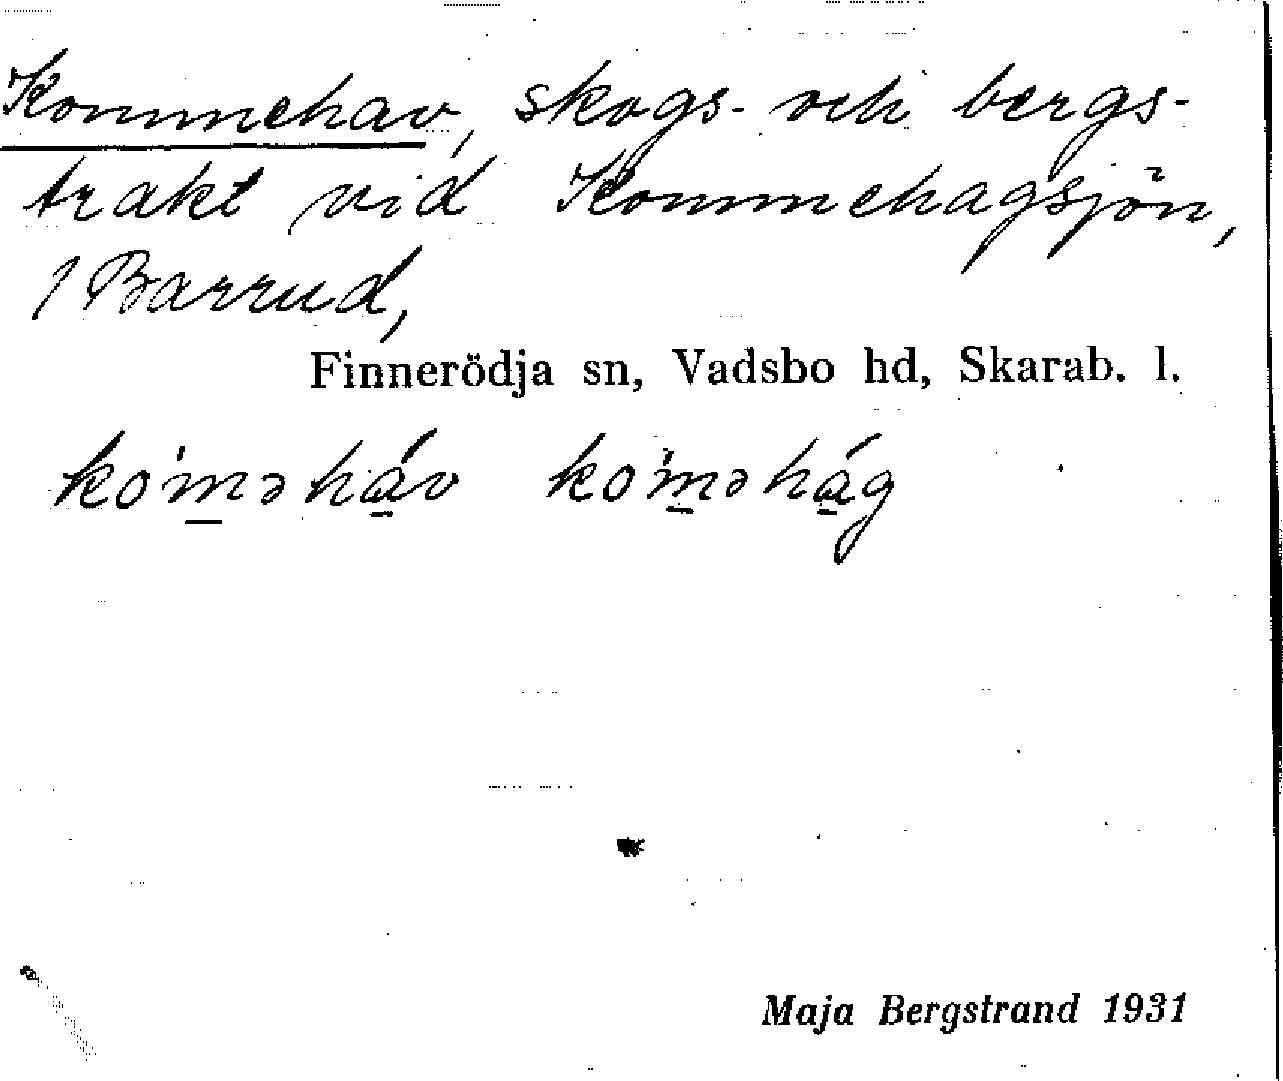 Kommehav, skogs- och bergs-
trakt vid Kommehagsjön,
1 Barrud,
Finnerödja sn, Vadsbo hd, Skarab. l.
ko'm̲əhá̲v ko'm̲əhá̲g
Maja Bergstrand 1931